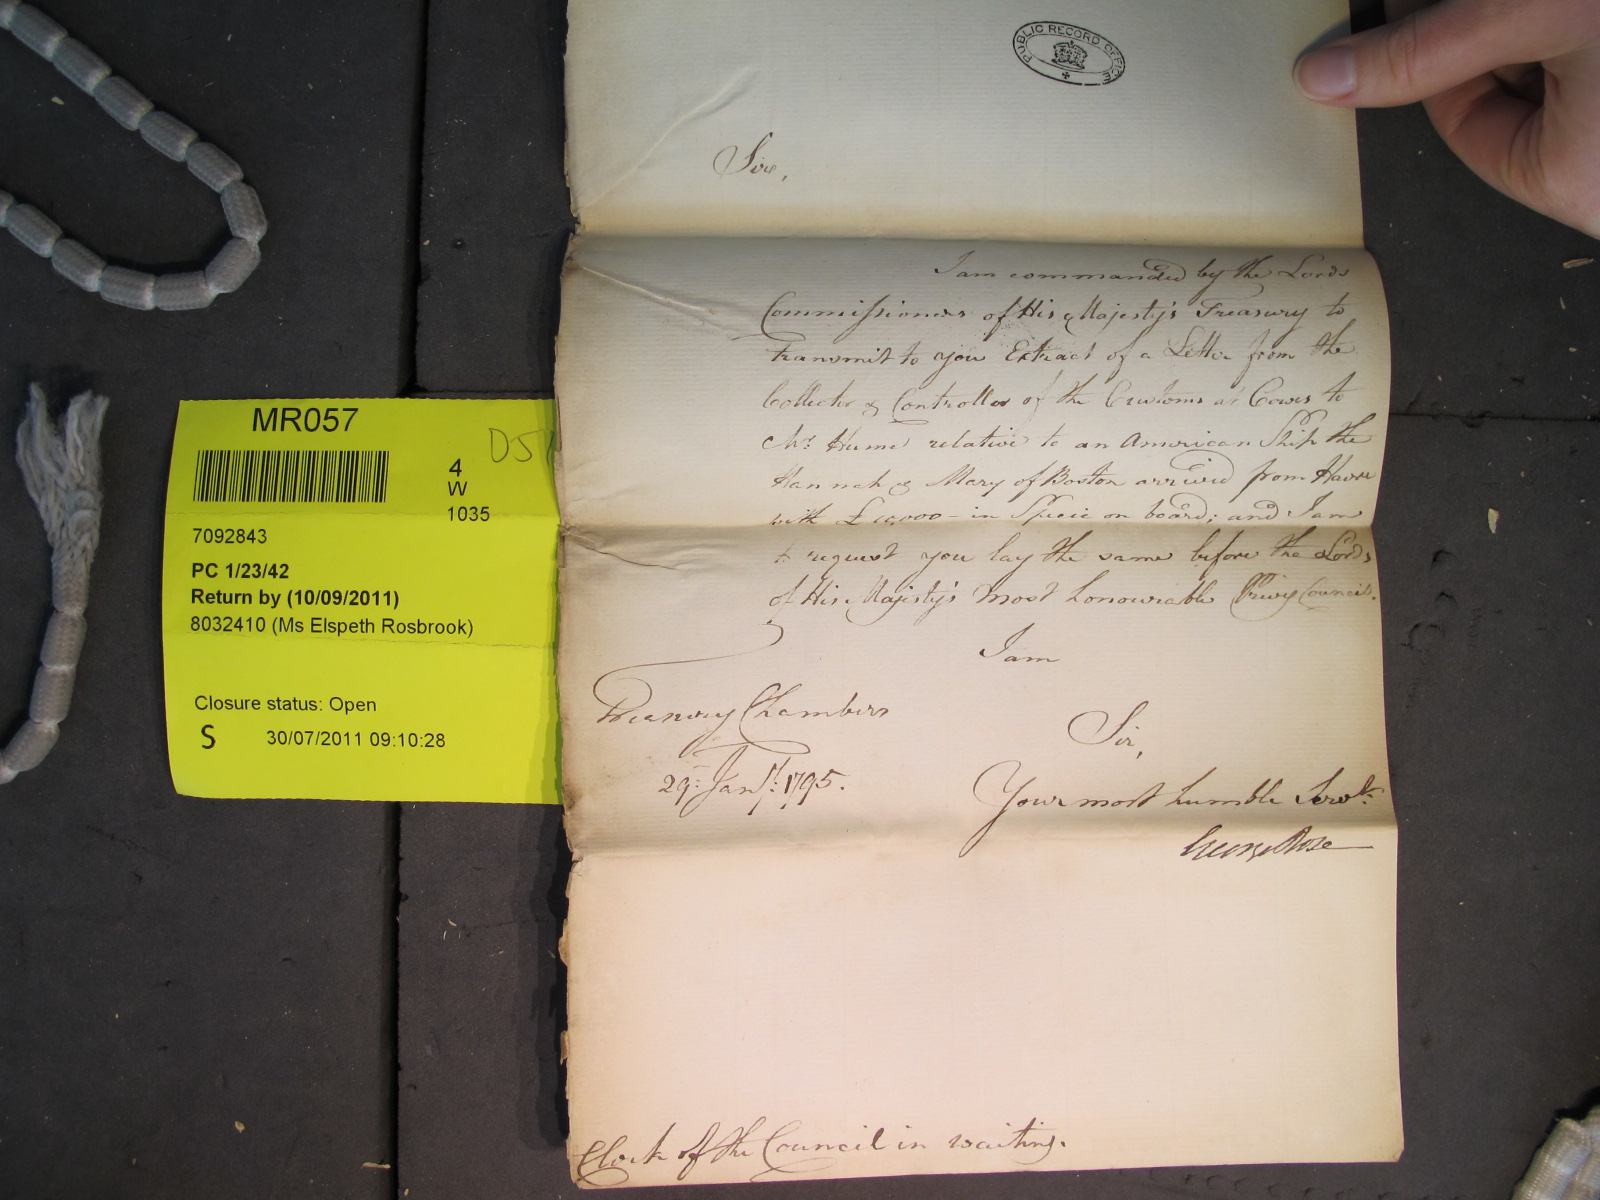 PUBLIC RECORD OFFICE
Sir,
I am commanded by the Lords
Commissioners of His Majesty's Treasury to
transmit to you Extract of a Letter from the
Collector & Controller of the Customs at Cowes to
Mr. Hume relative to an American Ship the
Hannah & Mary of Boston arrived from Havre
with in Specie on board; and I am
to request you lay the same before the Lords
of His Majesty's Most honourable Privy Council.
I am
Sir,
Your most humble Servt.
George Rose
Treasury Chambers
29th Jany. 1795.
Clerk of the Council in waiting.
MR057
D5
4
W
1035
7092843
PC 1/23/42
Return by (10/09/2011)
8032410 (Ms Elspeth Rosbrook)
Closure status: Open
S 30/07/2011 09:10:28